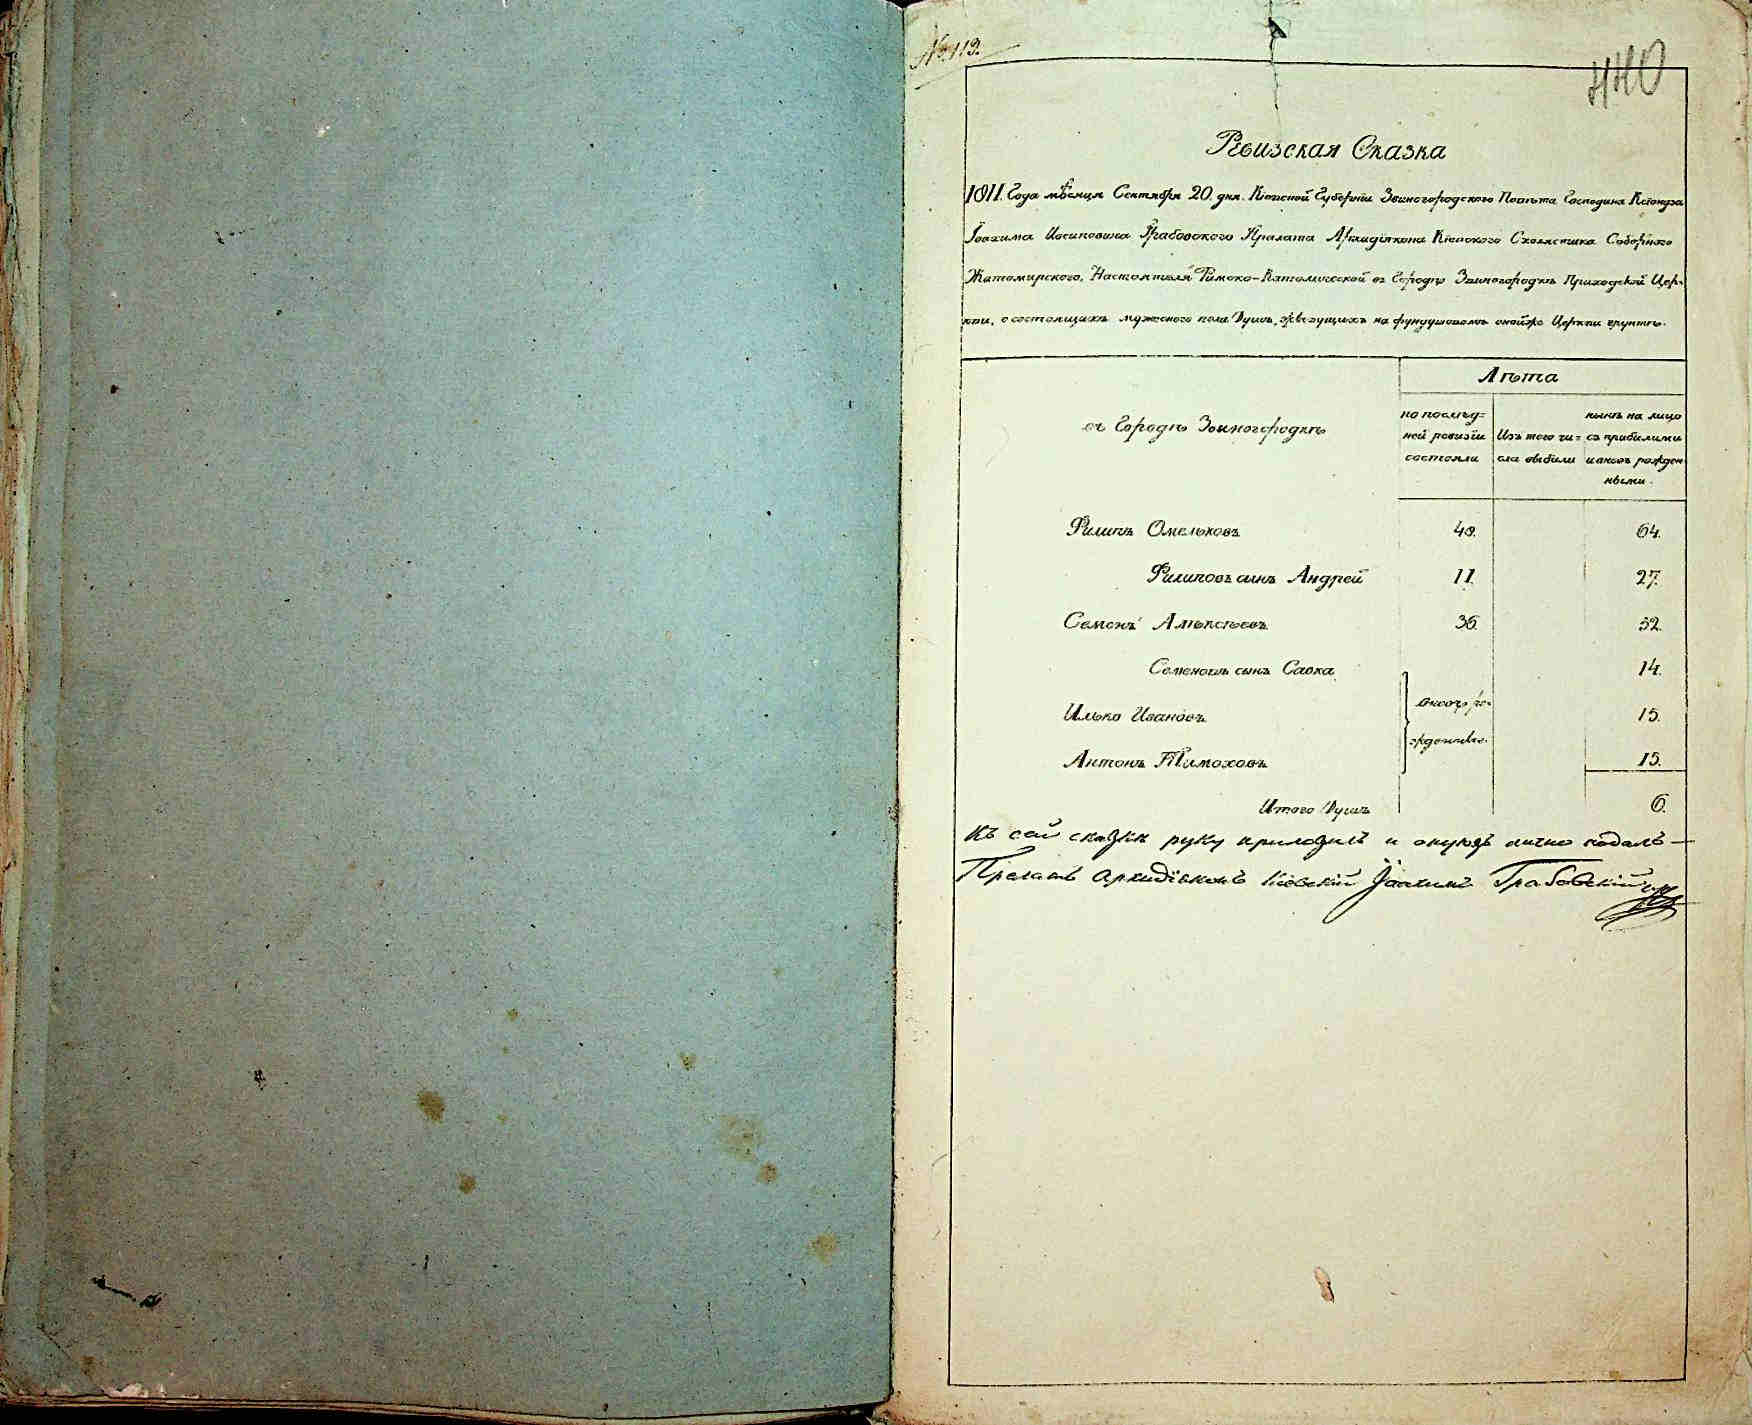 № 113.
440
Ревизская Сказка
1811. Года мѣсяца Сентября 20. дня. Кіевской Губерніи Звиногородского Повѣта Господина Ксіондза
Іоахима Иосиповича Грабовского Прелата Архидіякона Кіевского Схолястика Соборного
Житомирского, Настоятеля Римско-Католической въ Городѣ Звиногородкѣ Приходской Цер-
кви, о состоящихъ мужеского пола душъ, живущихъ на фундушовомъ онойже Церкви грунтѣ.
Лѣта
въ Городѣ Звиногородкѣ
по послѣд=
ней ревизіи
состояли
Изъ того чи=
сла выбыли
нынѣ на лицо
съ прибылыми
и вновь рожден
ными.
Филипъ Омельковъ 48. 64.
Филиповъ сынъ Андрей 11. 27.
Семенъ Алексѣевъ 36. 52.
Семеновъ сынъ Савка 14.
Илько Ивановъ вновь ро= 15.
жденные.
Антонъ Тимоховъ 15.
Итого Душъ 6.
Къ сей сказки руку приложилъ и оную лично подалъ —
Прелатъ Архидіяконъ Кіевскій Іоахимъ Грабовскій